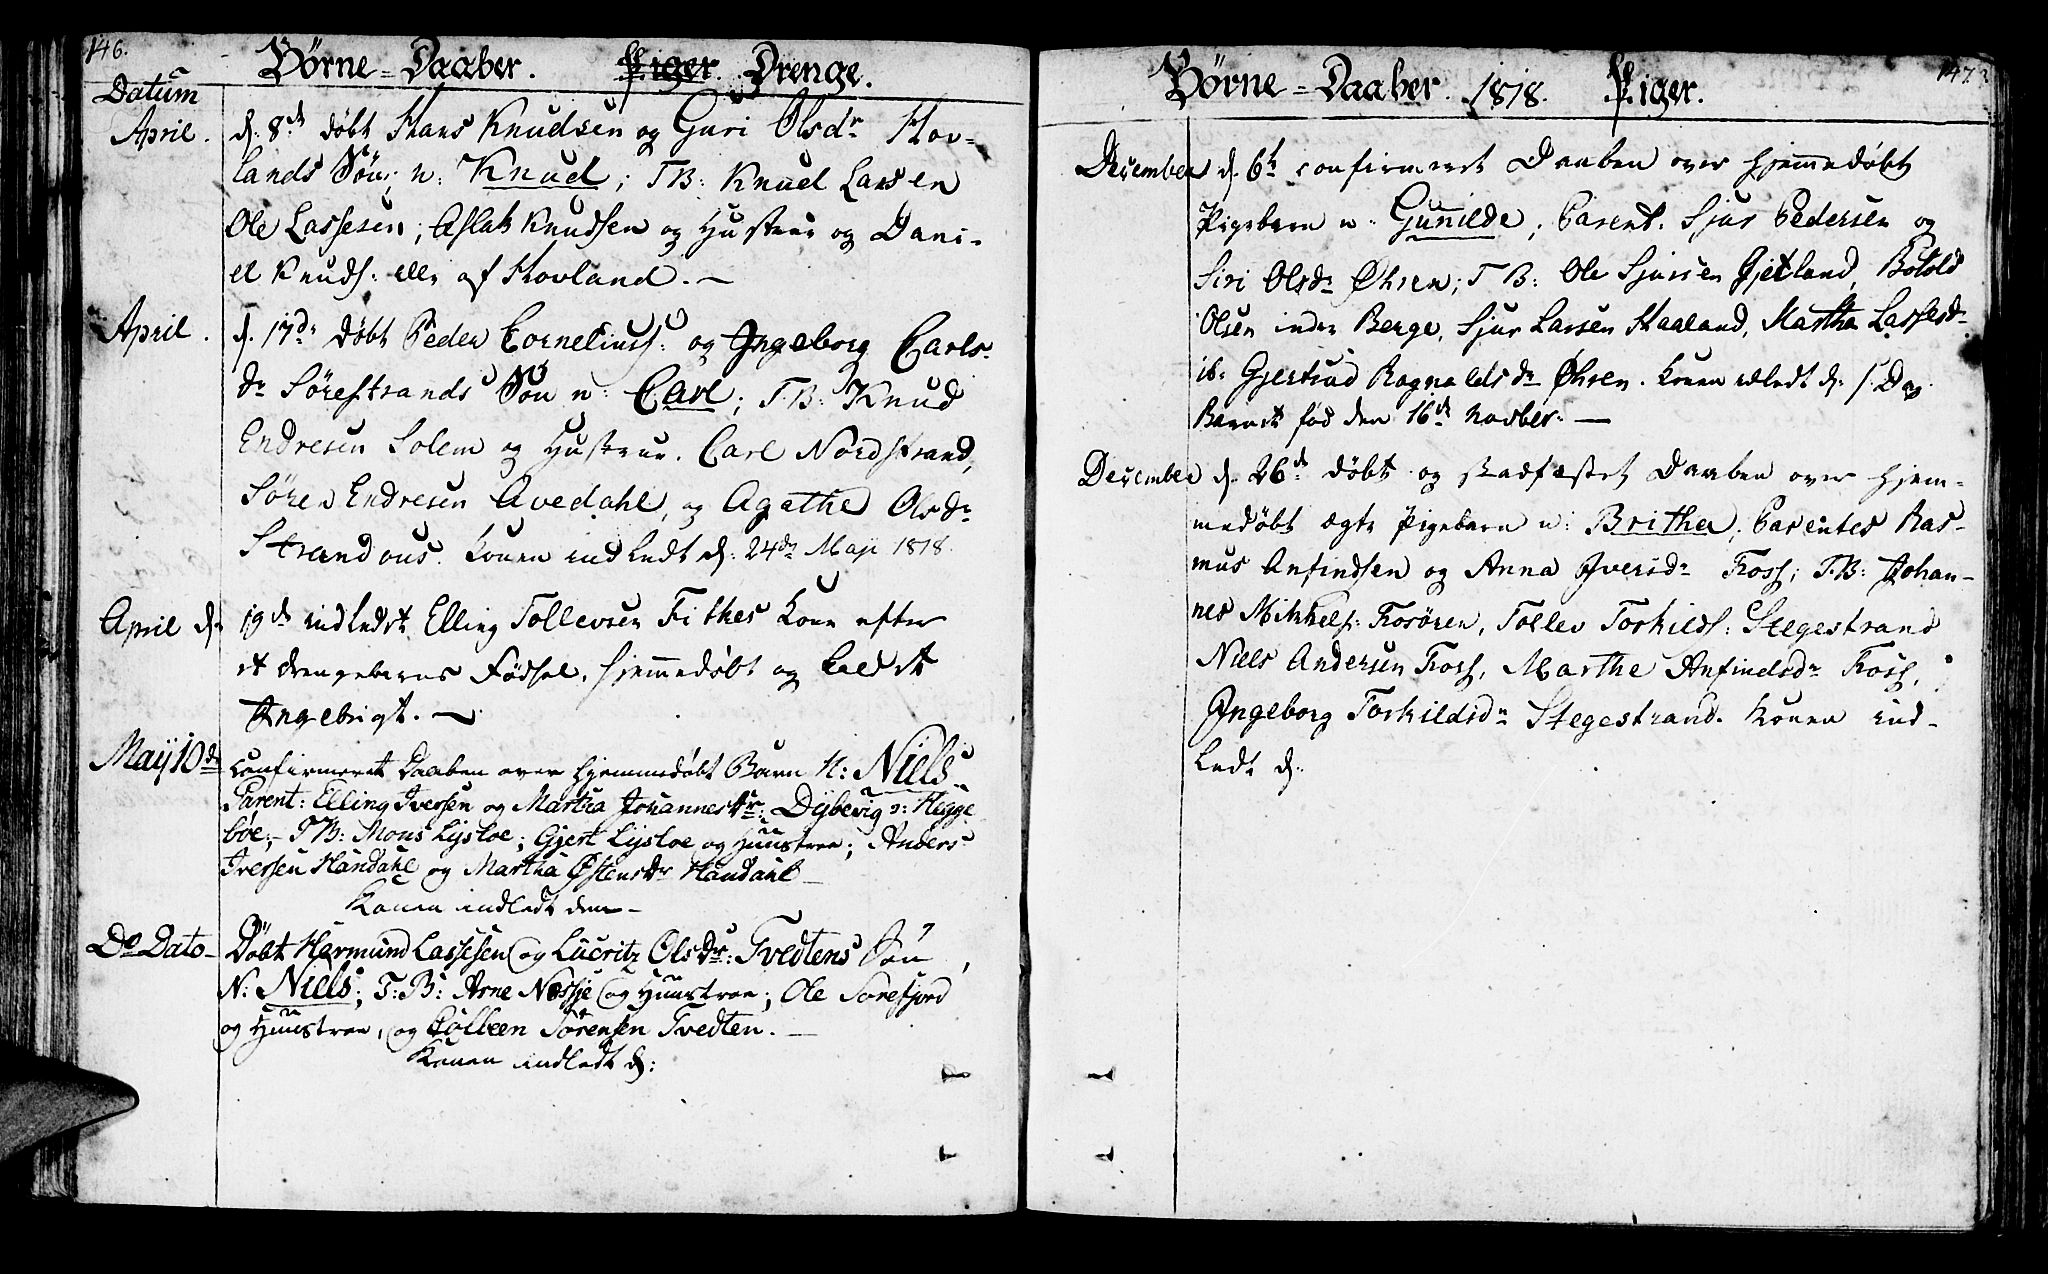 146.
Børne=Daaber. Piger. Drenge.
Datum
April. d. 8de døbt Hans Knudsen og Guri Olsdr Hov-
lands Søn; n: Knud; TB: Knud Larsen
Ole Lassesen; Aslak Knudsen og Hustrue og Dani-
el Knuds: alle af Hovland. —
April. d. 17de døbt Peder Corneliuss: og Ingeborg Carls-
dr Sørestrands Søn n: Carl; TB: Knud
Endresen Solem og Hustrue. Carl Nordstrand,
Søren Endresen Avedahl, og Agathe Olsdr
Strandous. Konen indledt d: 24de Maji 1818.
April d. 19de indledt Elling Tollevsen Fitkes Kone efter
et drengebarns Fødsel, hjemmedøbt og kaldet
Ingebrigt. —
May 10de confirmeret Daaben over hjemmedøbt Barn N: Niels
Parent: Elling Iversen og Martha Johannesdr: Dybevig : Hegge
bøe; TB: Mons Lysloe; Gjert Lysloe og Huustroe; Anders
Iversen Handahl og Martha Østensdr Handahl —
Konen indledt den —
Do Dato — Døbt Harmund Lassesen og Lucritz Olsdr: Tvedtens Søn,
N: Niels; T:B: Arne Nessje og Huustroe; Ole Sørefjord
og Huustroe, og Sørensen Tvedten. —
Konen indledt d:
147.
Børne=Daaber. 1818. Piger.
December d. 6te confirmeret Daaben over hjemmedøbt
Pigebarn n: Gunilde; Parent. Sjur Pedersen og
Siri Olsdr Øhren; TB: Ole Sjursen Gjetland, Botold
Olsen indre Berge, Sjur Larsen Haaland, Martha Lassesdr
ib: Gjertrud Ragnaldsdr Øhren. Konen indledt d: s. Dag
Barnet fød den 16de Novber. —
December d. 26de døbt og stadfæstet Daaben over hjem-
medøbt ægte Pigebarn n: Britha; Parentes Ras-
mus Anfindsen og Anna Iversdr Foss; T.B: Johan-
nes Mikkels: Fosøren, Tollev Torkilds: Stegestrand
Niels Andersen Foss, Marthe Anfindsdr Foss,
Ingeborg Torkildsdr Stegestrand. Konen ind-
ledt d: